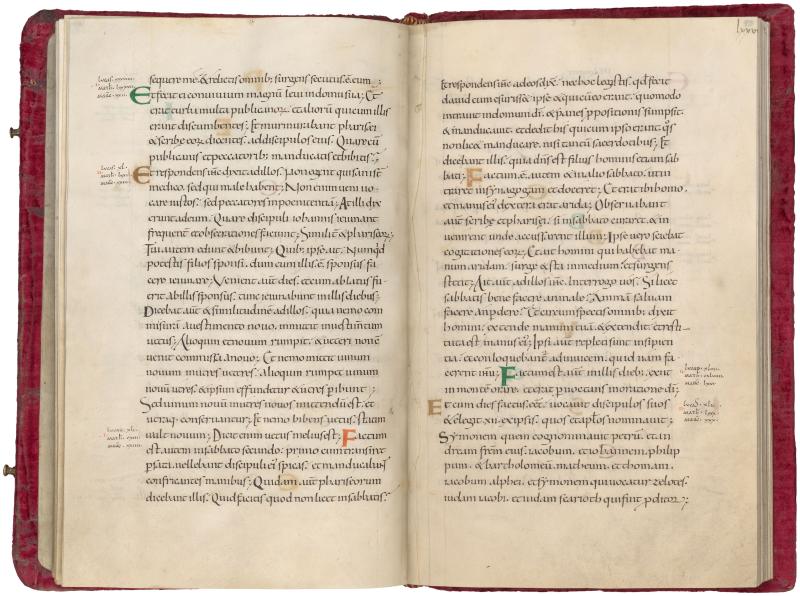 sequere me. & relictis omnib; surgens secutus. ē. eum;
Et fecit ei conuiuium magnū leui in domo sua; Et
erat turba multa publicanoꝝ. et alioꝝ qui cum illis
erant discumbentes; Et murmurabant pharisei
& scribe eoꝝ dicentes. ad discipulos eius. Quare cū
publicanis et peccatorib; manducatis et bibitis;
Et respondens ihc dixit ad illos. Non egent qui sani sē
medico. sed qui male habent; Non enim ueni uo-
care iustos. sed peccatores in poenitentiā; At illi dix
erunt ad eum. Quare discipuli iohannis ieiunant
frequent et obsecrationes faciunt; Similit & phariseoꝝ;
Tui autem edunt & bibunt; Quib; ipse ait. Nunqd
potestis filios sponsi. dum cum illis. ē. sponsus fa
cere ieiunare; Venient aut dies. et cum ablatus fu-
erit ab illis sponsus. tunc ieiunabunt in illis diebus;
Dicebat aut & similitudinē ad illos. quia nemo com
missurā a uestimento nouo. inmittit in uestimentum
uetus; Alioquin et nouum rumpit. & ueteri non
uenit commissura a nouo; Et nemo mittit uinum
nouum in utres ueteres. alioquin rumpet uinum
nouū utres. & ipsum effundetur & utres peribunt;
Sed uinum nouū in utres nouos mittendū est. et
utraq; conseruantur; Et nemo bibens uetus. statim
uult nouum; Dicit enim uetus melius est; Factum
est autem in sabbato secundo. primo cum transiret
p sata. uellebant discipuli ei spicas. et manducabant
confricantes manibus; Quidam aut phariseorum
dicebant illis. Quid facitis quod non licet in sabbatis;
Et respondens ihc ad eos dix. nec hoc legistis. qd fecit
dauid cum esurisset ipse & qui cū eo erant. quomodo
intrauit in domum dī. & panes ppositionis sumpsit.
& manducauit. et dedit his qui cum ipso erant. qs
non licet manducare. nisi tantū sacerdotibus; Et
dicebat illis. quia dns est filius hominis etiam sab
bati; Factum. ē. autem & in alio sabbato. ut in
traret in synagogam et doceret; Et erat ibi homo.
et manus ei dextera erat arida; Obseruabant
aut scribe et pharisei. si in sabbato curaret. & in
uenirent unde accusarent illum; Ipse uero sciebat
cogitationes eoꝝ; Et ait homini qui habebat ma-
num aridam. surge & sta in medium. et surgens
stetit; Ait aut ad illos ihc. Interrogo uos. Si licet
sabbatis bene facere an male. Animā saluam
facere an pdere; Et circumspectis omnib; dixit
homini. extende manum tuā & extendit. et resti-
tuta est manus ei; Ipsi aut repleti sunt insipien
tia. et conloquebant ad inuicem. quid nam fa-
cerent ihu; Factum est aut in illis dieb. exiit
in montē orare. et erat pnoctans in oratione dī;
Et cum dies factus. eēt. uocauit discipulos suos
& elegit. xii. ex ipsis. quos et apłos nominauit;
Symonem quem cognominauit petrū. et an
dream frem eius. iacobum. et iohannem. philip
pum. & bartholomeū. matheum. et thomam.
iacobum alphei. et symonem qui uocatur zelotes.
iudam iacobi. et iudam scarioth qui fuit pditor;